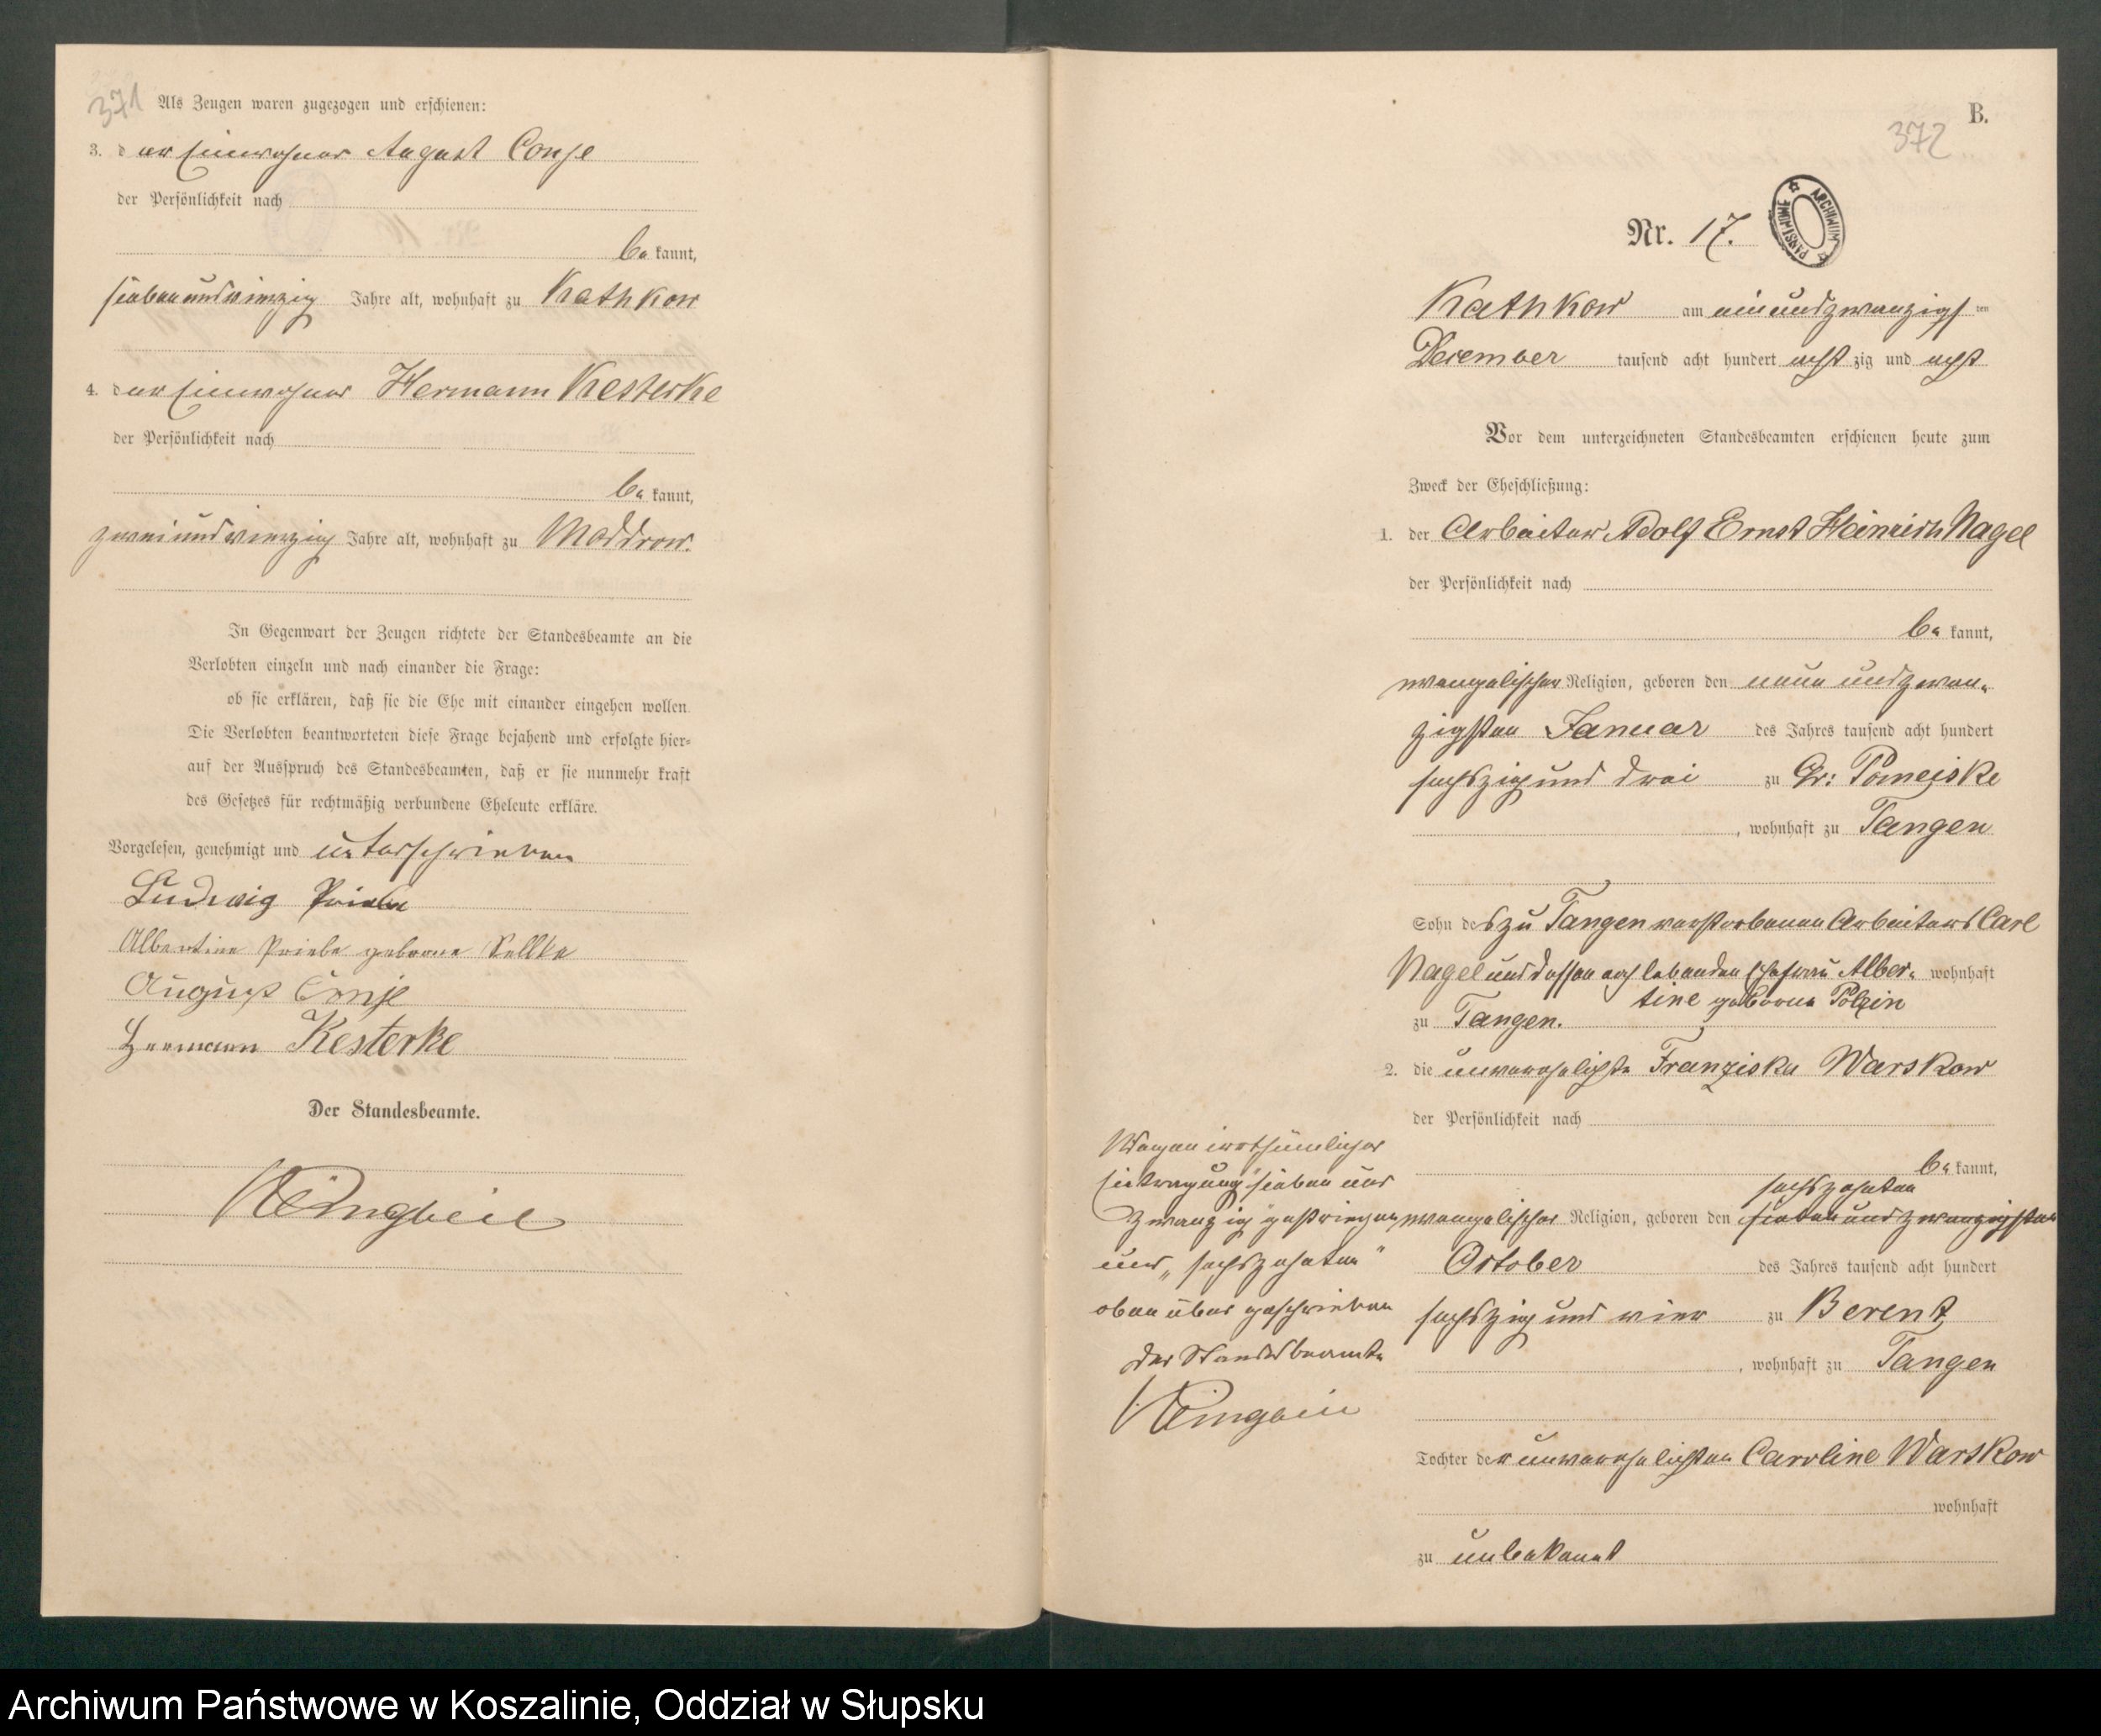 371 Als Zeugen waren zugezogen und erschienen:
3. der Einwohner August Conje
der Persönlichkeit nach
be kannt,
siebenundvierzig Jahre alt, wohnhaft zu Kathkow
4. der Einwohner Hermann Kesterke
der Persönlichkeit nach
be kannt,
zweiundvierzig Jahre alt, wohnhaft zu Moddrow.
In Gegenwart der Zeugen richtete der Standesbeamte an die
Verlobten einzeln und nach einander die Frage:
ob sie erklären, daß sie die Ehe mit einander eingehen wollen.
Die Verlobten beantworteten diese Frage bejahend und erfolgte hier-
auf der Ausspruch des Standesbeamten, daß er sie nunmehr kraft
des Gesetzes für rechtmäßig verbundene Eheleute erkläre.
Vorgelesen, genehmigt und unterschrieben
Ludwig Priebe
Albertine Priebe geborene Sellke
August Conje
Hermann Kesterke
Der Standesbeamte.
B.
372
Nr. 17.
ARCHIWUM PAŃSTWOWE
Kathkow am einundzwanzigsten
December tausend acht hundert achtzig und acht
Vor dem unterzeichneten Standesbeamten erschienen heute zum
Zweck der Eheschließung:
1. der Arbeiter Adolf Ernst Heinrich Nagel
der Persönlichkeit nach
be kannt,
evangelischer Religion, geboren den neun und zwan-
zigsten Januar des Jahres tausend acht hundert
sechszig und drei zu Gr: Pomeiske
, wohnhaft zu Tangen
Sohn des zu Tangen verstorbenen Arbeiters Carl
Nagel und dessen noch lebenden Ehefrau Alber- wohnhaft
tine geborne Polzin
zu Tangen.
2. die unverehelichte Franziska Warskow
der Persönlichkeit nach
be kannt,
sechszehnten
evangelischer Religion, geboren den siebenundzwanzigsten
October des Jahres tausend acht hundert
sechszig und vier zu Berent
, wohnhaft zu Tangen
Tochter der unverehelichten Caroline Warskow
wohnhaft
zu unbekannt
Wegen irrthümlicher
Eintragung "sieben und
zwanzig" gestrichen
und „sechszehnten"
oben über geschrieben
Der Standesbeamte
Archiwum Państwowe w Koszalinie, Oddział w Słupsku